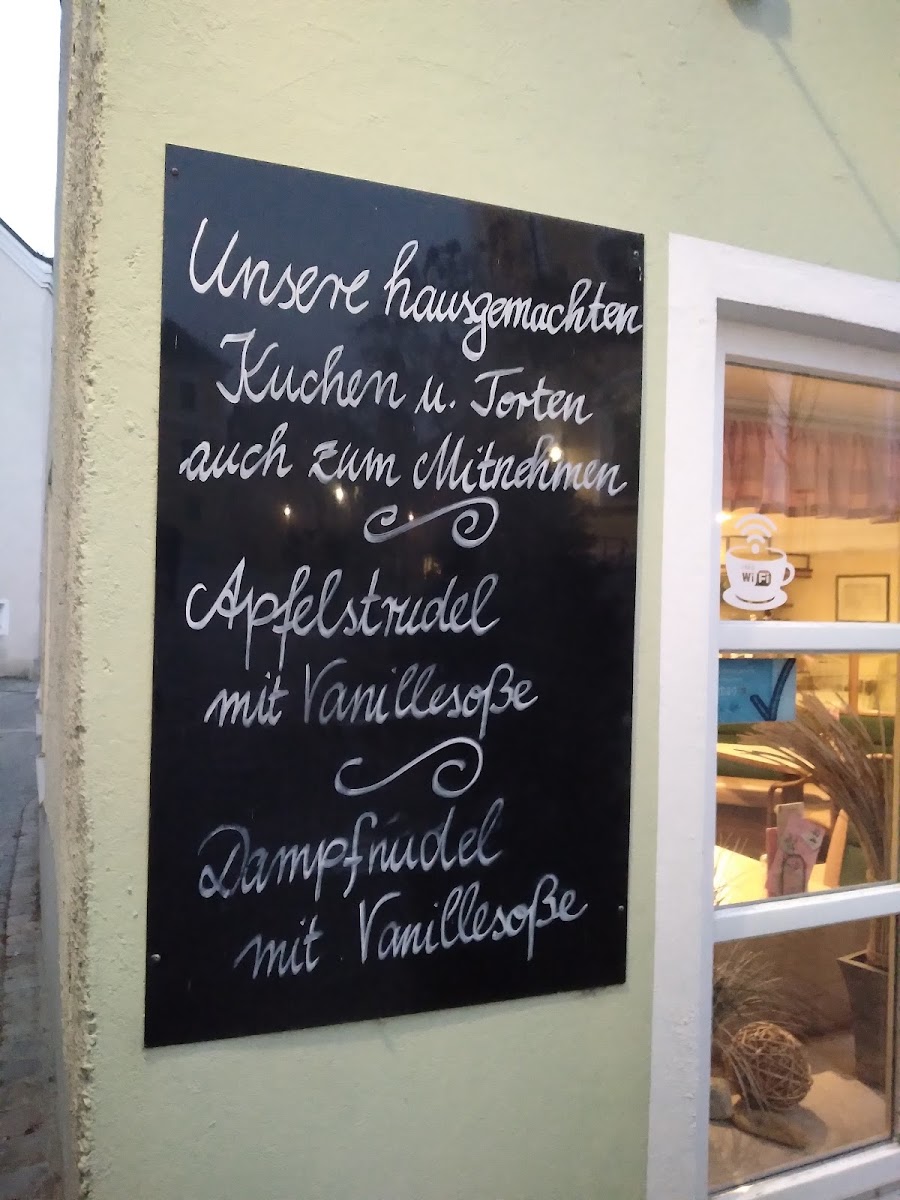 Unsere hausgemachten
Kuchen u. Torten
auch zum Mitnehmen
Apfelstrudel
mit Vanillesoße
Dampfnudel
mit Vanillesoße
WiFi